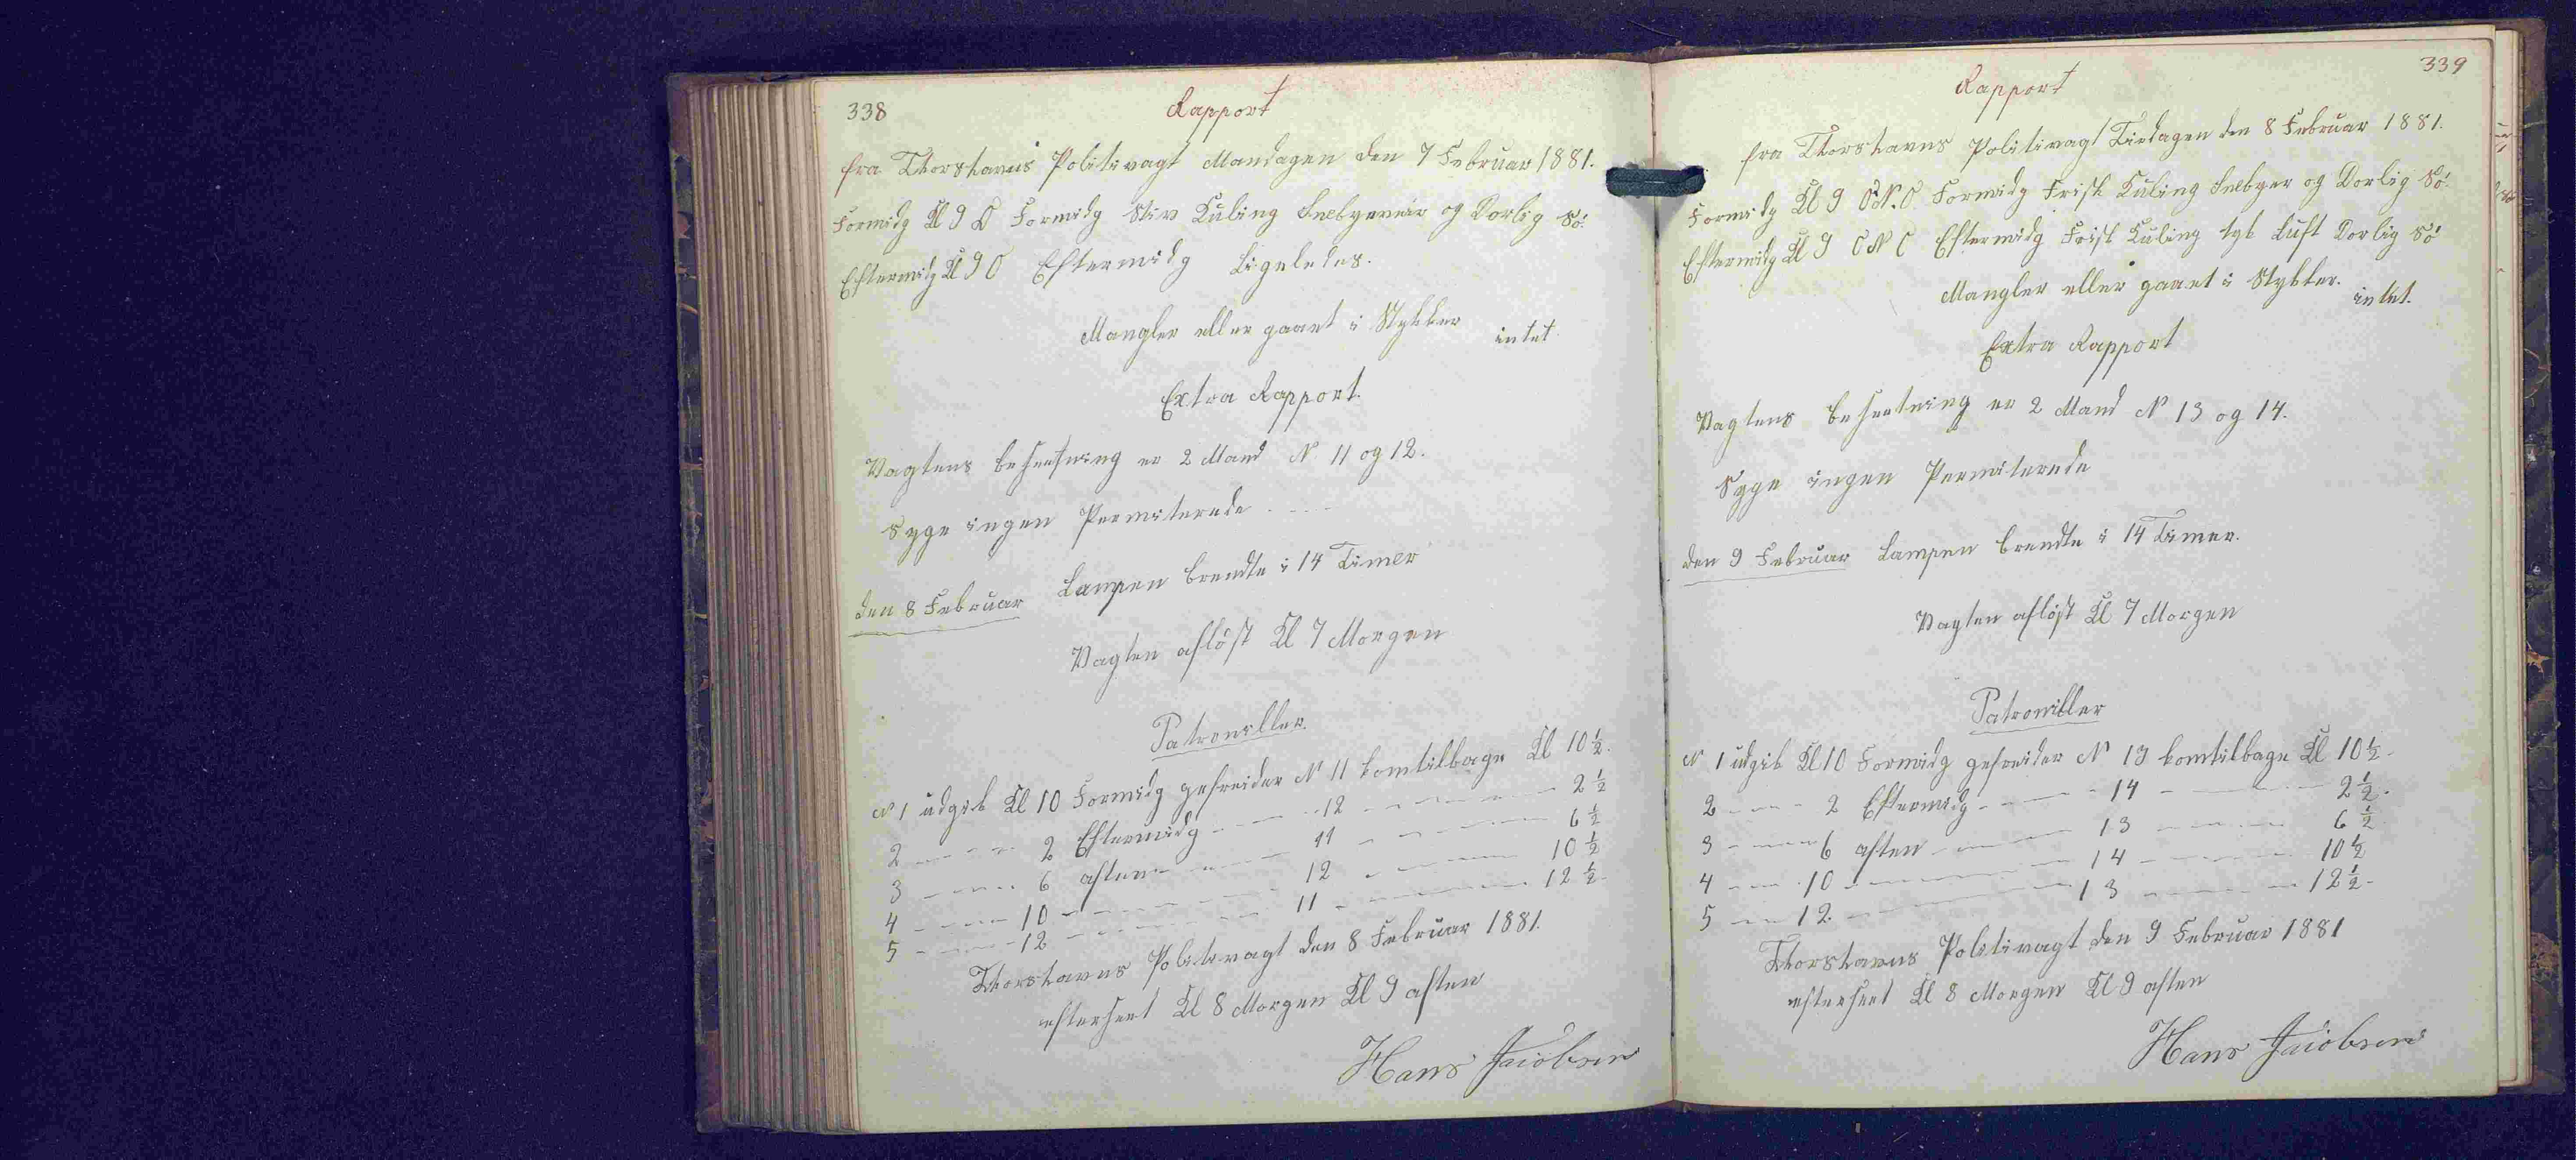 338
Rapport
fra Thorshavns Politivagt Mandagen den 7 Februar 1881.
Formidg Kl 9 O Formidg Stiv Kuling Snebyeveir og Dorlig Sö.
Eftermidg Kl 9 O Eftermidg Ligeledes.
Mangler eller gaaet i Stykker intet
Extra Rapport.
Vagtens besætning er 2 Mand N 11 og 12.
Syge ingen Permiterede . . . .
den 8 Februar Lampen brendte i 14 Timer
Vagten aflöst Kl 7 Morgen
Patrouiller.
N 1 udgik Kl 10 Formidg gefreider N 11 komtilbage Kl 10 ½.
2 - - - - 2 Eftermidg - - - 12 - - - - 2 ½
3 - - - - 6 aften - - - 11 - - - - 6 ½
4 - - - - 10 - - - - 12 - - - - 10 ½
5 - - - - 12 - - - - 11 - - - - 12 ½.
Thorshavns Politivagt den 8 Februar 1881.
efterseet Kl 8 Morgen Kl 9 aften
Hans Jacobsen
339
Rapport
fra Thorshavns Politivagt Tirdagen den 8 Februar 1881.
Formidg Kl 9 O.N.O. Formidg Frisk Kuling Snebyer og Dorlig Sö.
Eftermidg Kl 9 O N O Eftermidg Frisk Kuling tyk Luft Dorlig Sö
Mangler eller gaaet i Stykker. intet.
Extra Rapport
Vagtens besætning er 2 Mand N 13 og 14.
Syge ingen Permiterede
den 9 Februar Lampen brendte i 14 Timer.
Vagten aflöst Kl 7 Morgen
Patrouiller
N 1 udgik Kl 10 Formidg gefreider N 13 komtilbage Kl 10 ½.
2 - - - 2 Eftermidg - - - 14 - - - 2 ½.
3 - - - 6 aften - - - 13 - - - 6 ½
4 - - - 10 - - - 14 - - - 10 ½
5 - - - 12. - - - 13 - - - 12 ½.
Thorshavns Politivagt den 9 Februar 1881
efterseet Kl 8 Morgen Kl 9 aften
Hans Jacobsen